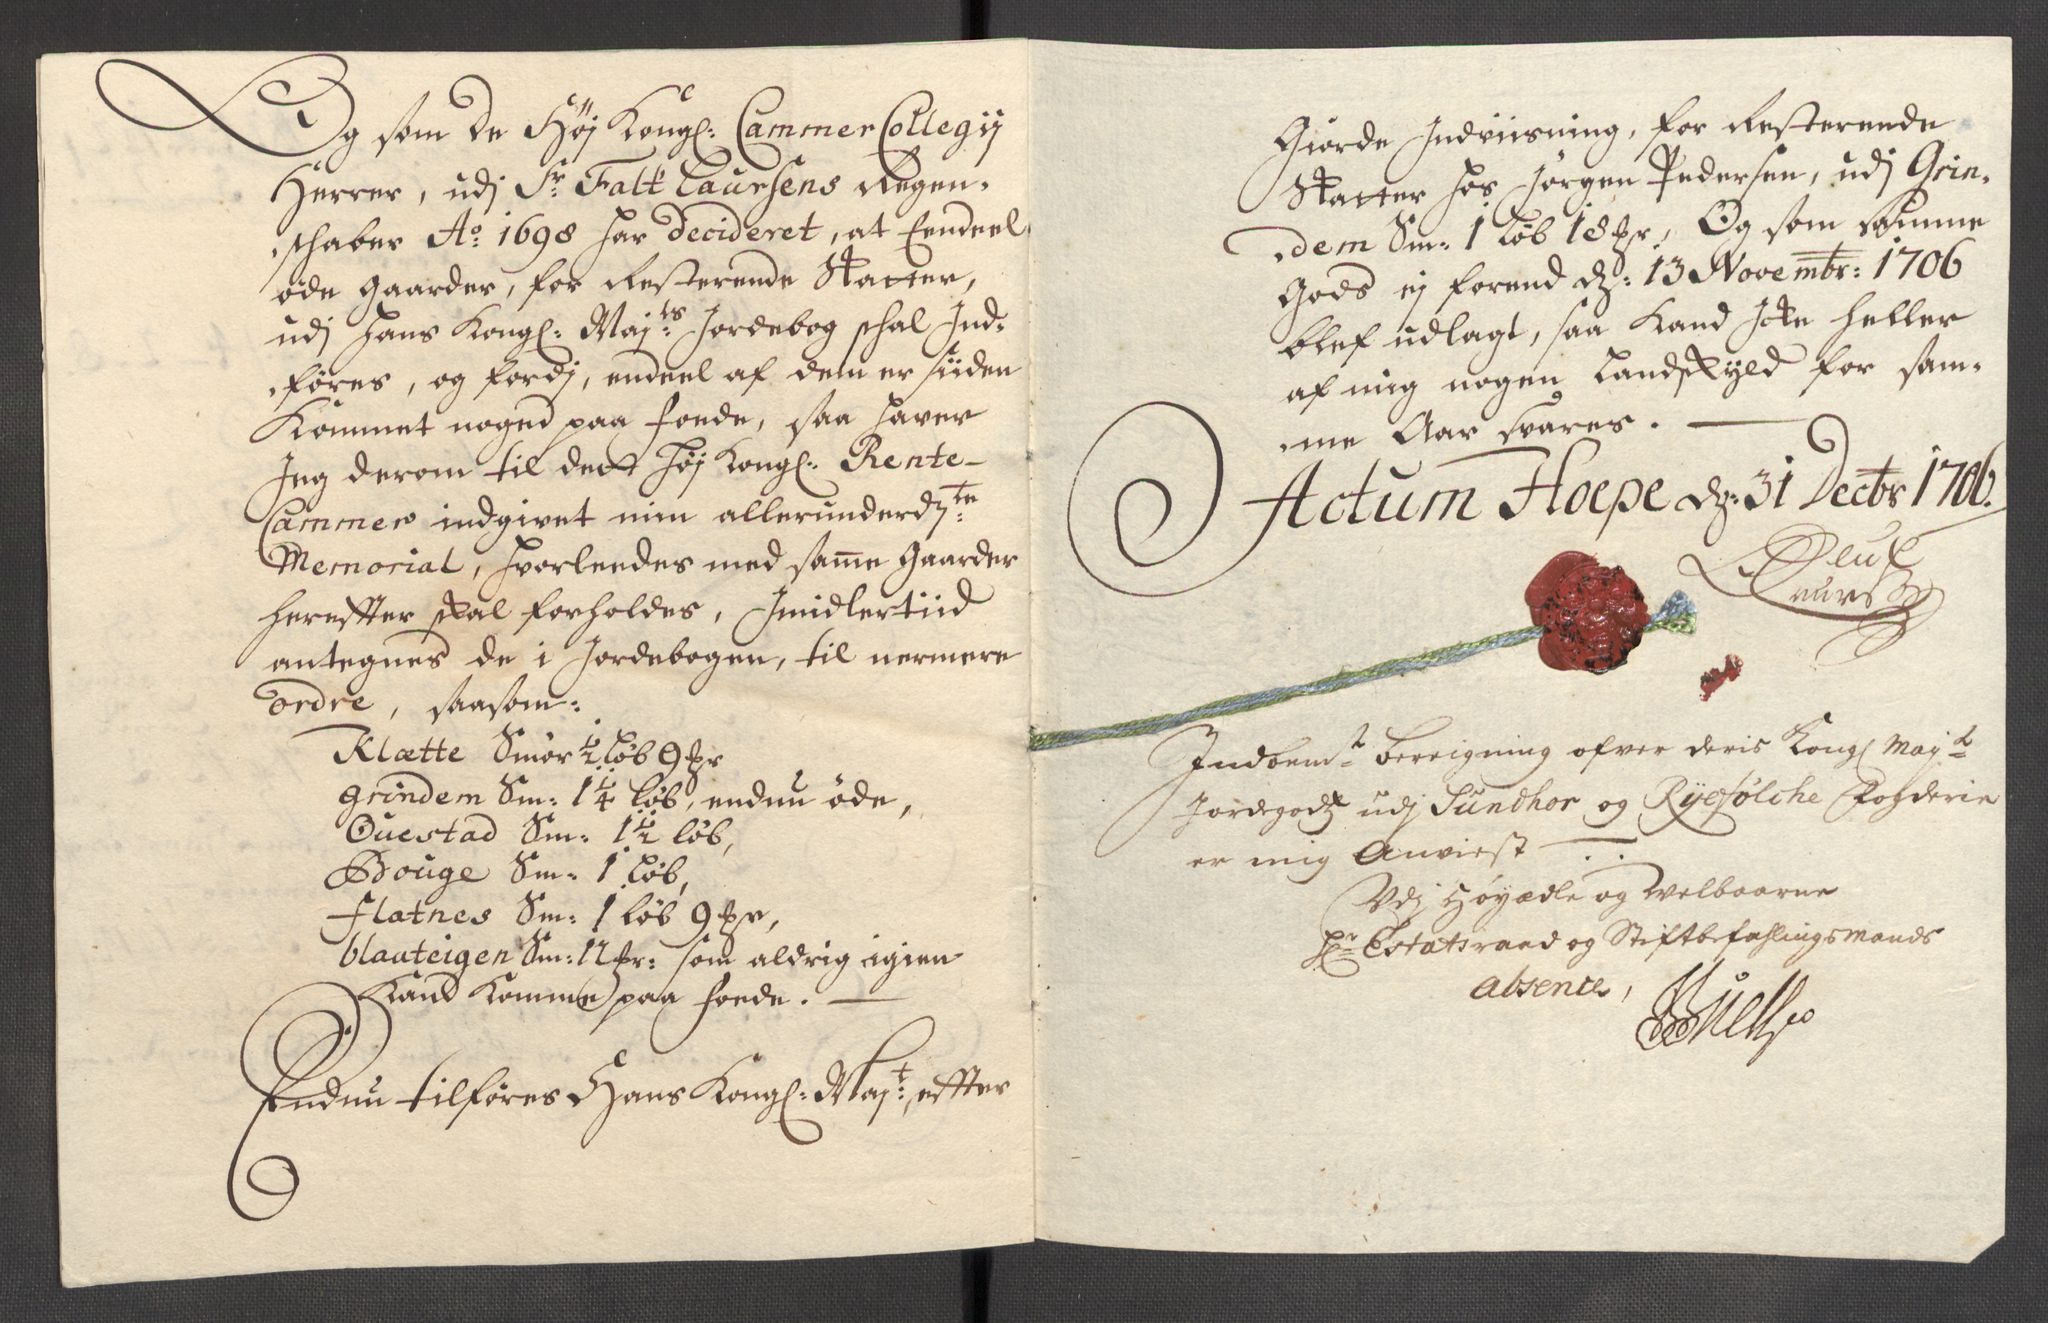 Og som de Høj Kongl: Cammer Collegij
Herrer, udj Sr. Falk Laursens Regen-
schaber Ao: 1698 har decideret, at Eendeel
øde gaarder, for Resterende Skatter,
udj Hans Kongl: Majts Jordebog schal Ind-
føres, og fordj, endeel af dem er siiden
Kommet noged paa foede, saa haver
Jeg derom til dett høj Kongl: Rente-
Cammer indgivet min allerunderd:ste
Memorial, hvorleedes med samme gaarder
hereffter skal forholdes, Imidlertiid
antegnes de i Jordebogen, til nermere
ordre, saasom:
Klætte Smør ½ Løb 9 pr
Grindem Sm: 1¼ Løb, endnu øde,
Ouestad Sm: 1½ løb,
Bouge Sm: 1 Løb,
Flatnes Sm: 1 Løb 9 pr,
blaateigen Sm: 12 pr: som aldrig igien
Kand Komme paa foede.
Endnu tilføres Hans Kongl: Majt: effter
Giorde Indviisning, for Resterende
Skatter hos Jørgen Pedersen, udj Grin-
dem Sm: 1 Løb 18 pr, Og som samme
Gods ej forend d: 13 Novembr: 1706
blef udlagt, saa Kand Icke heller
af mig nogen Landskyld for sam-
me Aar svares.
Actum Hoepe d: 31 Decbr 1706.
Laurs
Indbem:te bereigning ofver deris Kongl May:ts
Jordegodtz udj Sundhor og Ryefølche Fogderie
er mig Anviest
Udj Høyædle og Welbaarne
Hr Estatsraad og Stiftbefahlingsmands
absence,